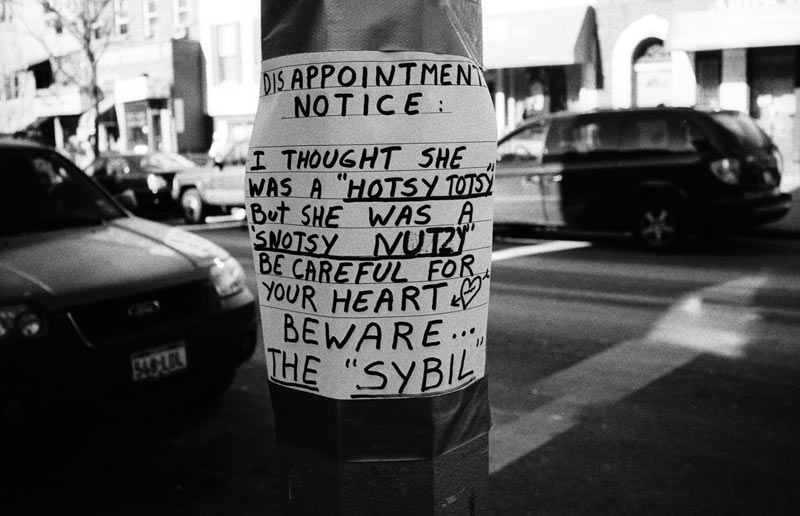 DISAPPOINTMENT
NOTICE:
I THOUGHT SHE
WAS A "HOTSY TOTSY"
BUT SHE WAS A
"SNOTSY NUTZY"
BE CAREFUL FOR
YOUR HEART
BEWARE...
THE "SYBIL"
Ford